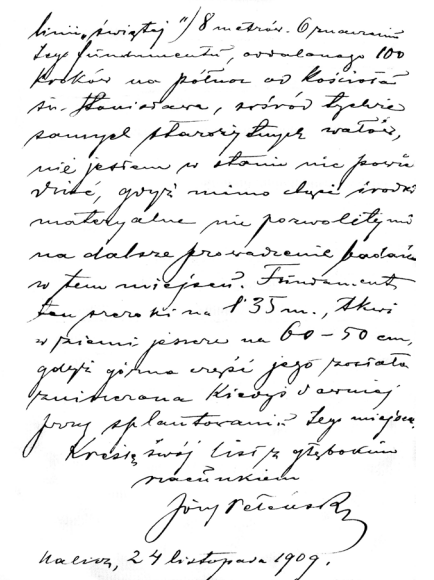 linii „świętej") 8 metrów. O znaczeniu
tego fundamentu, oddalonego 100
kroków na północ od Kościoła
św. Stanisława, wśród tychże
samych starożytnych wałów,
nie jestem w stanie nic powie
dzieć, gdyż mimo chęci środki
materyalne nie pozwoliły mi
na dalsze prowadzenie badań
w tem miejscu. Fundament
ten szeroki na 1'35 m., tkwi
w ziemi jeszcze na 60 – 50 cm,
gdyż górna część jego została
zniesiona Kiedyś dawniej
przy splantowaniu tego miejsca.
Kreślę swój list z głębokim
szacunkiem
Józef Peleński
Halicz, 24 listopada 1909.